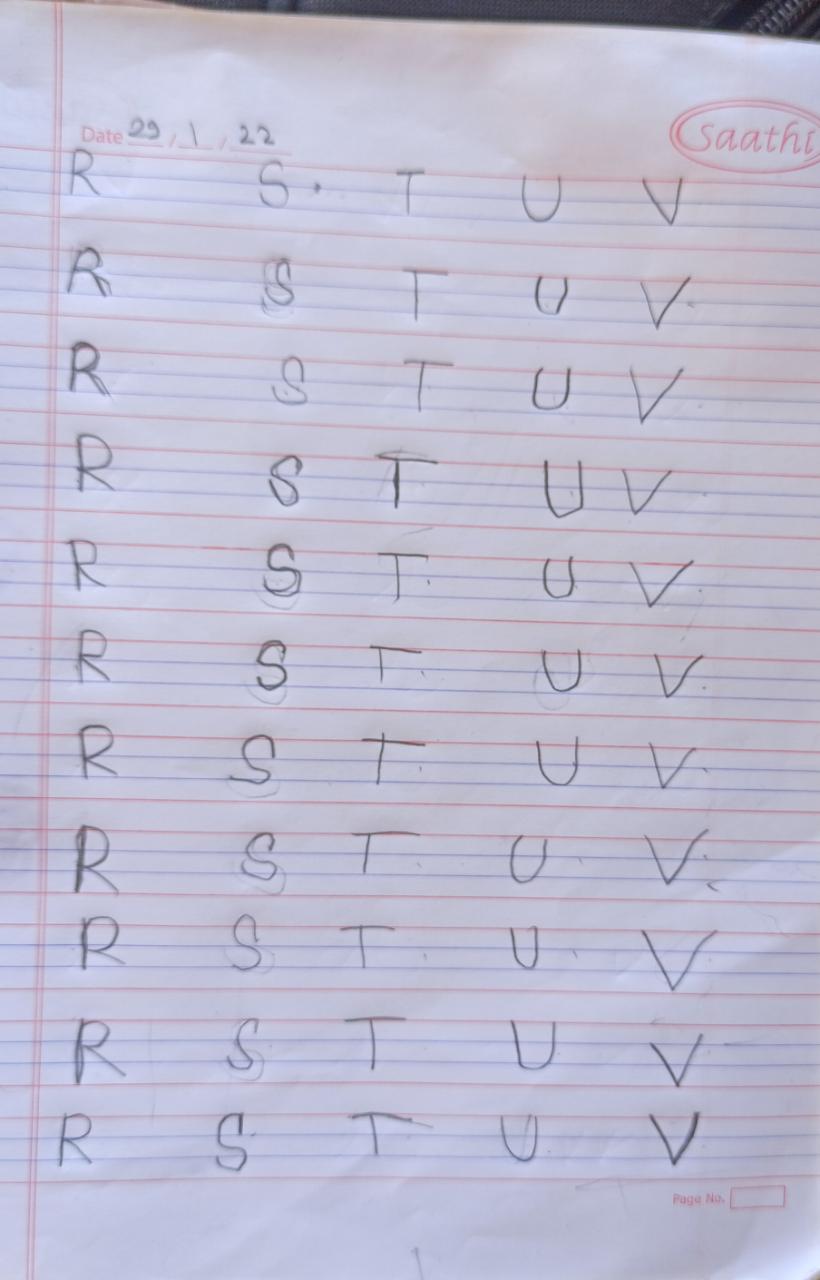 Saathi
Date 29/1/22
R S. T U V
R S T U V
R S T U V
R S T U V
R S T U V
R S T U V
R S T U V
R S T U V
R S T U V
R S T U V
R S T U V
Page No.